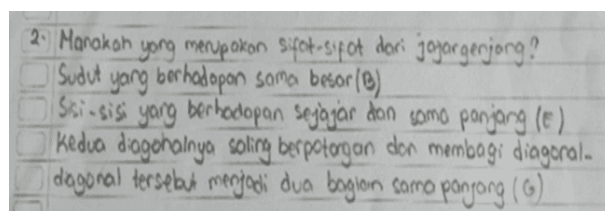 2. Manakah yang merupakan sifat-sifat dari jajargenjang?
Sudut yang berhadapan sama besar (B)
Sisi-sisi yang berhadapan sejajar dan sama panjang (E)
Kedua diagonalnya saling berpotongan dan membagi diagonal-
dagonal tersebut menjadi dua bagian sama panjang (G)